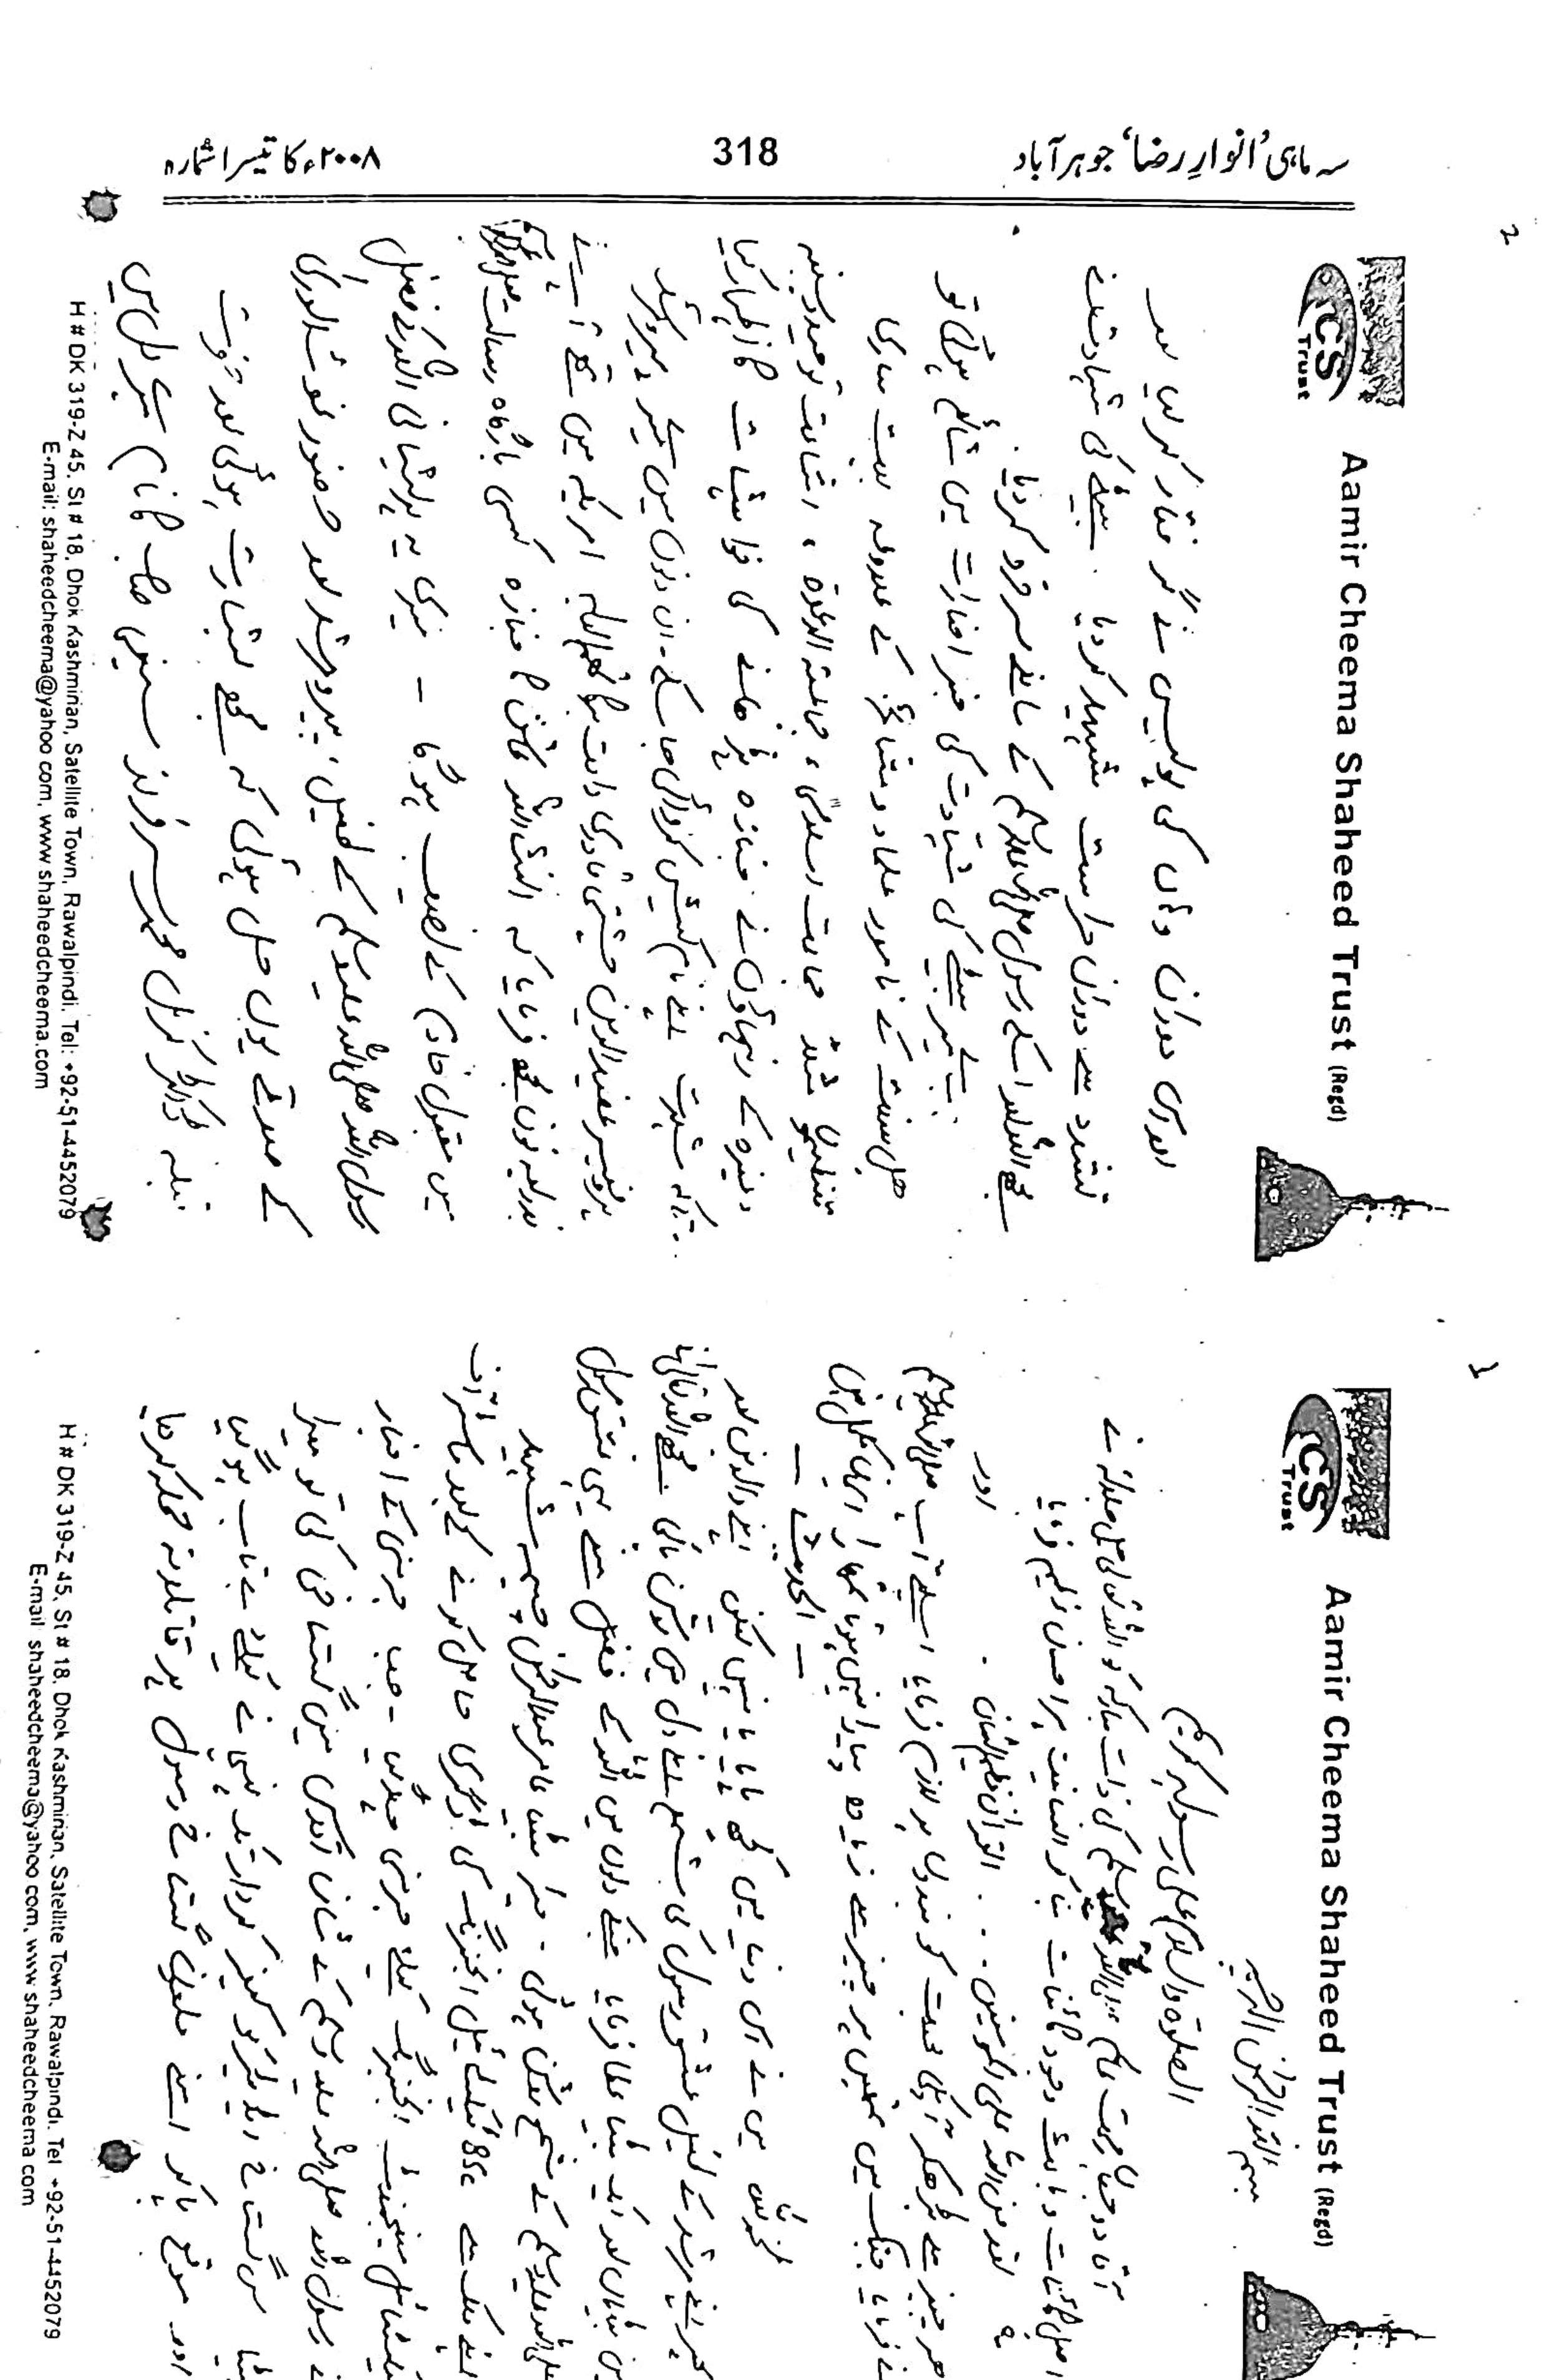 سہ ماہی ’انوارِ رضا‘ جوہرآباد
318
۲۰۰۸ء کا تیسرا شمارہ
1
CS
Trust
Aamir Cheema Shaheed Trust (Regd)
بسم اللہ الرحمٰن الرحیم
الصلوٰة والسلام علی رسولہ کریم
آقا دوجہاں رحمت عالم صلی اللہ علیہ وسلم کی ذات مبارکہ کو اللہ تعالیٰ جل جلالہ نے
اصل کائنات و باعث وجود کائنات بنا کر انسانیت پر احسان عظیم فرمایا
لقد من اللہ علی المومنین . . . القرآن عظیم الشان . اور
ہر چیز سے بڑھکر آپکی محبت کو بندوں پر لازم فرمایا اسلئے آپ صلی اللہ علیہ وسلم
نے فرمایا جنگ میں تمہیں ہر چیز سے زیادہ پیارا نہیں ہوتا تمہارا ایمان مکمل نہیں
— الحدیث —
میں نے اس دنیا میں کچھ پایا یا نہیں لیکن اپنے والدین اور
گھرانے مرشد کے طفیل عشق رسول کی شمع اپنے دل میں روشن پائی. مجھے اللہ تعالیٰ نے
تین بیٹیاں اور ایک بیٹا عطا فرمایا جنکے دلوں میں اللہ کے فضل سے یہی عشق رسول
صلی اللہ علیہ وسلم کے شمع روشن ہوئی. میرا بیٹا عامر عبدالرحمٰن چیمہ شہید
اپنے ملک سے BSc ٹیکسٹائل انجینئرنگ کی ڈگری حاصل کرنے کے بعد ماسٹر آف
ٹیکسٹائل مینجمنٹ انجینئرنگ کیلئے جرمنی گیا. جب جرمنی کے اخبار
نے رسول اللہ صلی اللہ علیہ وسلم کے شان اقدس میں گستاخی کی تو میرا
بیٹا اس گستاخ ایڈیٹر کو کیفر کردار تک پہنچانے کیلئے بے تاب ہو گیا
اور موقع پا کر اسنے ملعون گستاخ رسول پر قاتلانہ حملہ کر دیا
H # DK 319-Z 45, St # 18, Dhok Kashmirian, Satellite Town, Rawalpindi. Tel +92-51-4452079
E-mail shaheedcheema@yahoo com, www shaheedcheema com
2
CS
Trust
Aamir Cheema Shaheed Trust (Regd)
اسی دوران وہاں کی پولیس نے گرفتار کر لیا اور
تشدد سے دوران حراست شہید کر دیا. بیٹے کی شہادت نے
مجھے اللہ اور اسکے رسول صلی اللہ علیہ وسلم کے سامنے سرخرو کر دیا.
جب میرے بیٹے کی شہادت کی خبر اخبارات میں شائع ہوئی تو
اہل سنت کے نامور علماء و مشائخ کے علاوہ بہت ساری
تنظیموں مثلاً جماعت اسلامی، جماعت الدعوة، اشاعت توحید وسنہ
وغیرہ کے رہنماؤں نے جنازہ پڑھانے کی خواہشات کا اظہار کیا
تاکہ شہرت اپنے نام کیش کروائی جا سکے. ان دنوں میں میرے پیر و مرشد
پروفیسر حفیظ الدین چشتی قادری دامت برکاتہم العالیہ امریکہ میں تھے آپ نے
بذریعہ فون مجھے فرمایا کہ انشاءاللہ عاشق کا جنازہ کسی بارگاہ رسالت صلی اللہ علیہ وسلم کے
میں مقبول خادم کے نصیب ہوگا – میری یہ پریشانی اللہ کے فضل
رسول اللہ صلی اللہ علیہ وسلم کے طفیل، پیر و مرشد اور حضور غوث الوریٰ
کے صدقے یوں حل ہوئی کہ مجھے بشارت ہوئی اور حضرت
قبلہ ڈاکٹر کرنل محمد سرفراز سیفی صاحب کا نام میرے دل میں
H # DK 319-Z 45, St # 18, Dhok Kashmirian, Satellite Town, Rawalpindi. Tel: +92-51-4452079
E-mail: shaheedcheema@yahoo com, www shaheedcheema.com